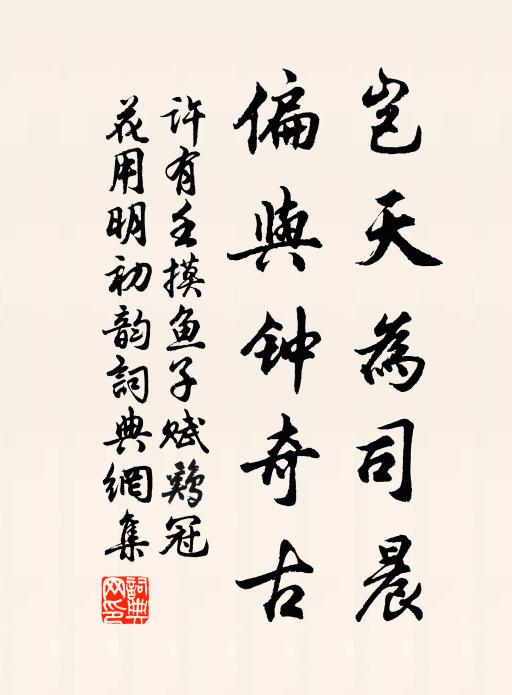 岂天为司晨
偏与钟奇古
许有壬摸鱼子赋鸡冠
花用明初韵词典网集
词典网印